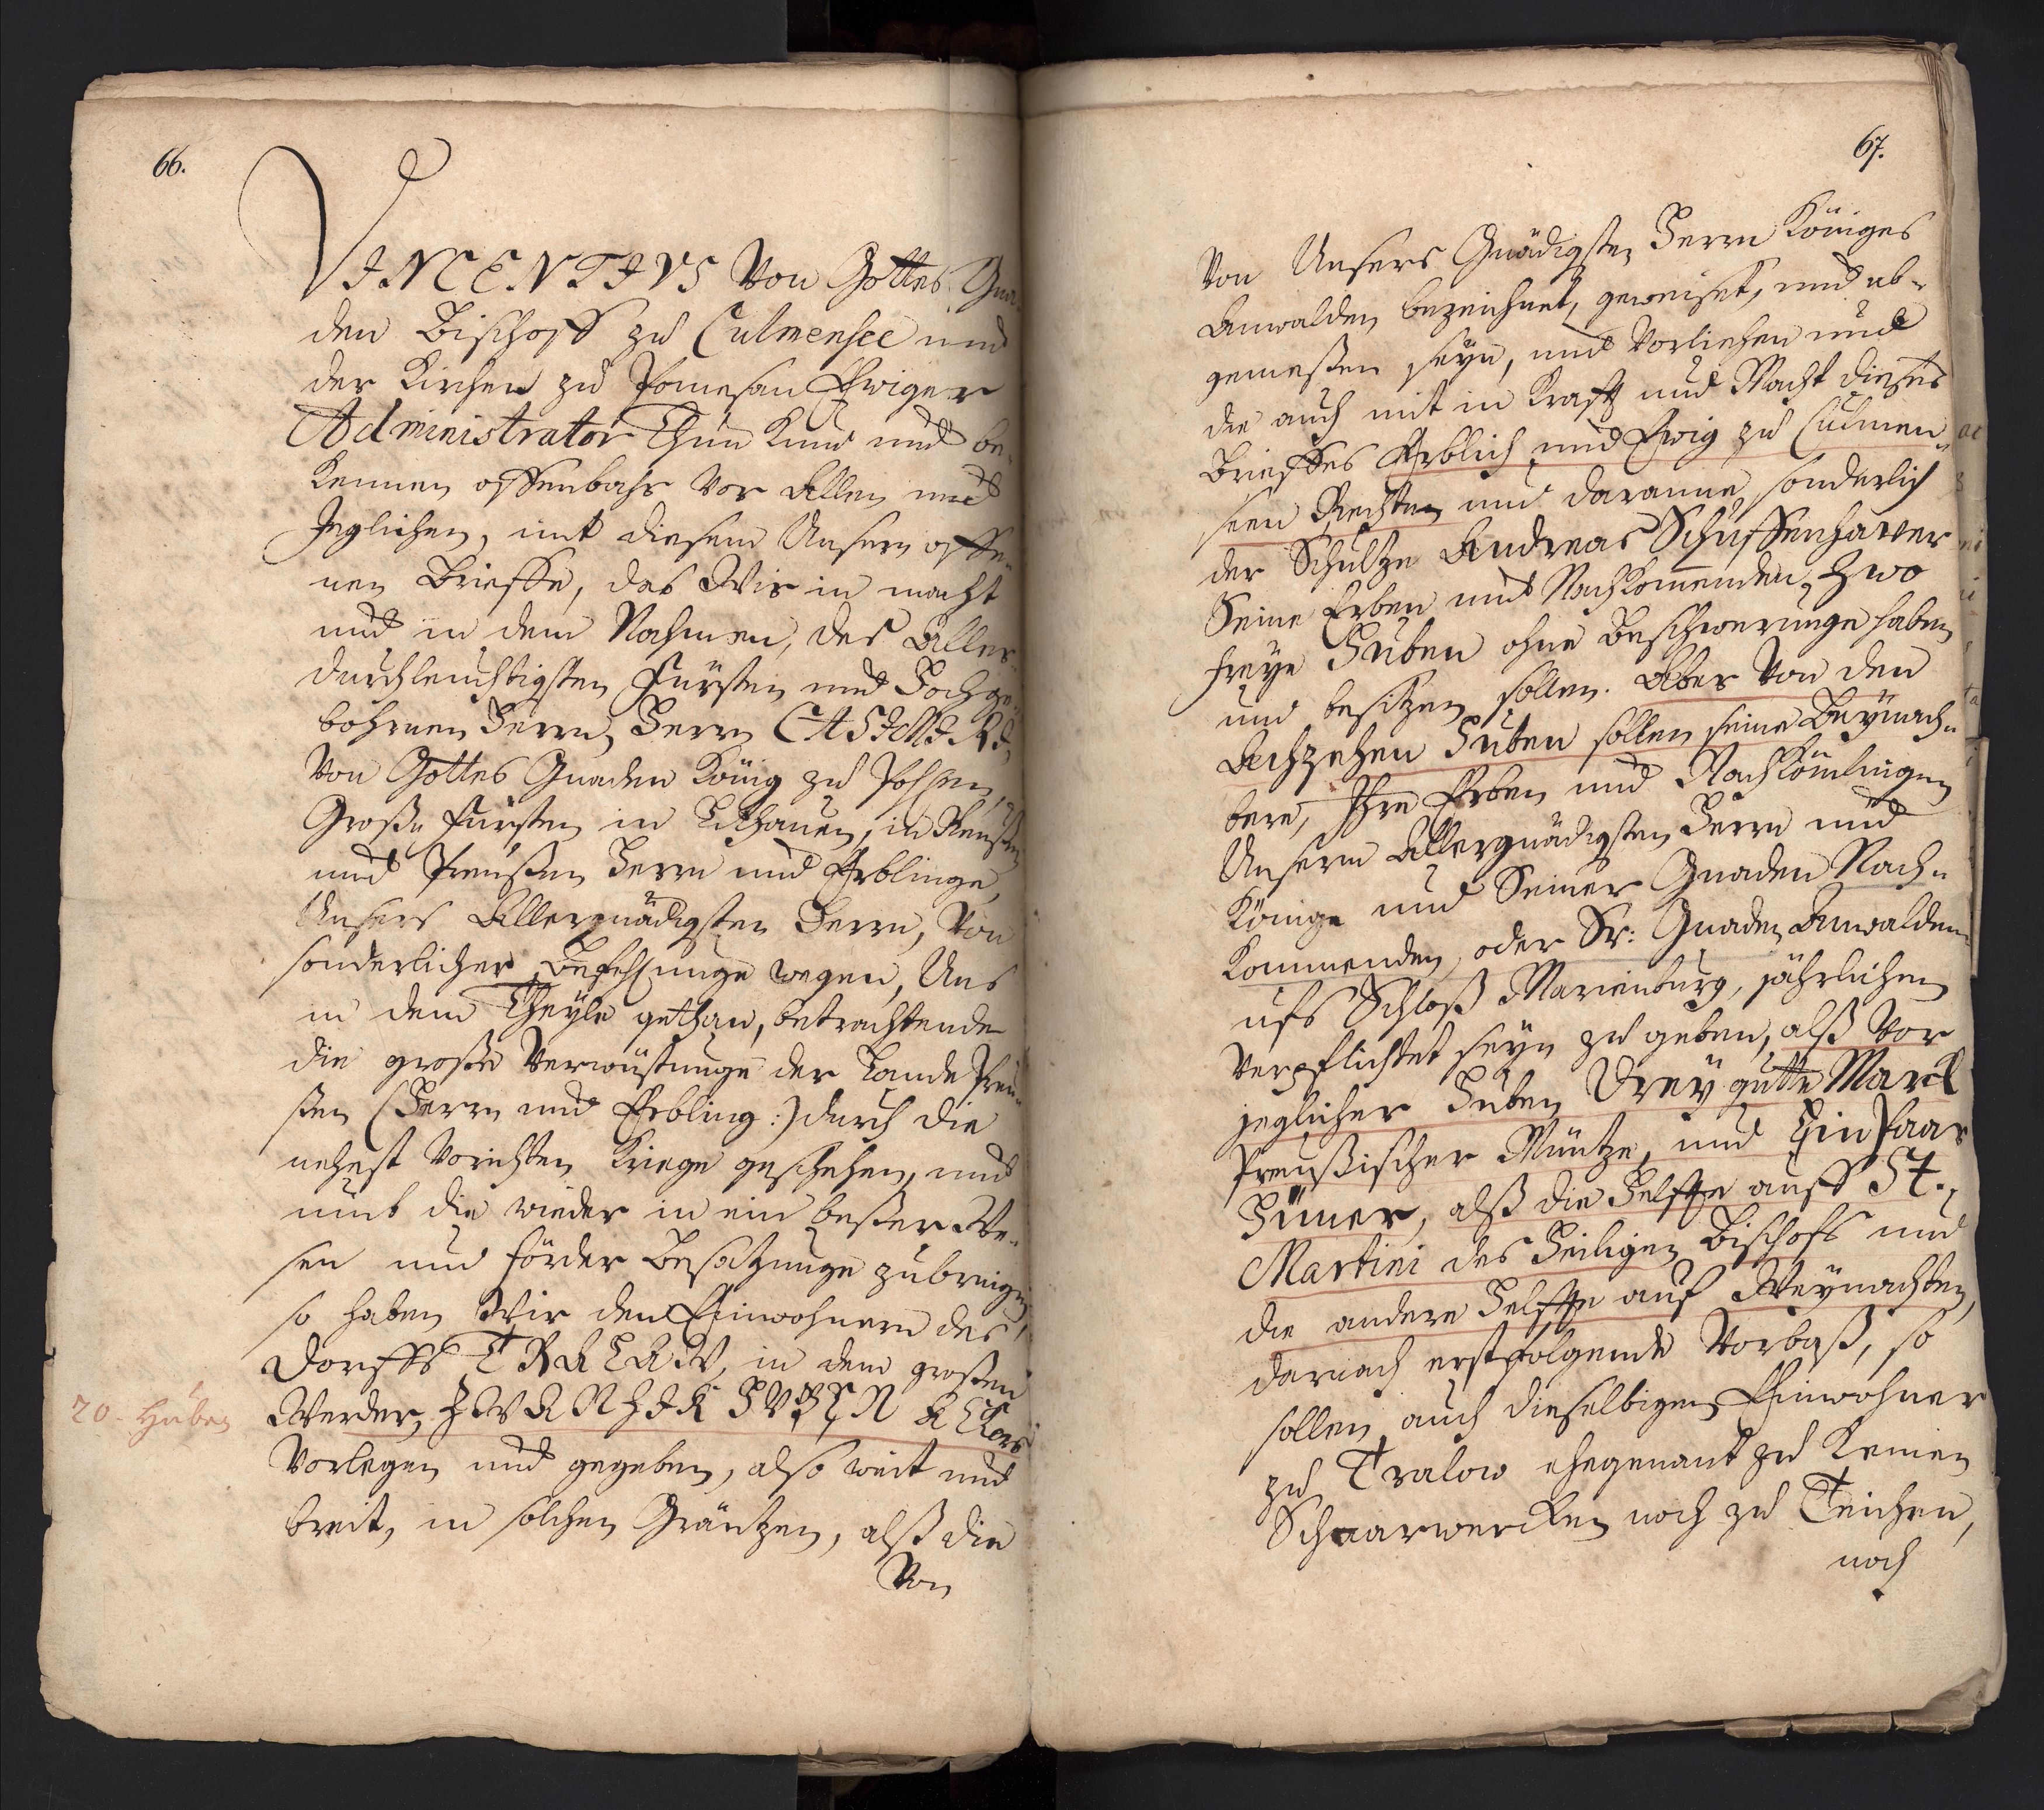 66.
VINCENTIVS Von Gottes Gna-
den Bischoff zu Culmensee und
der Kirchen zu Pomesan Ewiger
Administrator Thun Kund und be-
Kennen offenbahr vor Allen und
Jeglichen, mit diesem Unsern offe-
nen Brieffe, das Wir in macht
und in dem Nahmen, des Aller-
durchleuchtigsten Fürsten und Hochge-
bohrnen Herrn, Herrn CASIMIRI,
Von Gottes Gnaden König zu Pohlen,
Groß-Fürsten in Litthauen, in Reußen
und Preußen Herrn und Erblinge,
Unsers Allergnädigsten Herrn, Von
sonderlicher Befehlunge wegen, Uns
in dem Theyle gethan, betrachtende
die große Verwüstunge der Lande Preu-
ßen (Herrn und Erbling:) durch die
nehest Vorichten Kriege geschehen, und
umb die wieder in ein beßer We-
sen und förder Besatzunge zubringen,
so haben Wir den Einwohnern des
Dorffs TRALAW, in dem großen
Werder, ZWANZIK HVBEN Ackers
20. Huben
Vorlegen und gegeben, also weit und
breit, in solchen Gräntzen, alß die
Von
67.
Von Unsers Gnädigsten Herrn Königes
Anwalden bezeichnet, geweiset, und ab-
gemeßen seyn, und Vorliehen und
die auch mit in Krafft und Macht dieses
Brieffes Erblich und Ewig zu Culmen-
seen Rechten und daranne sonderlich
der Schultze Andreas Schuffenhawer
Seine Erben und Nachkommenden, Zwo
freye Huben ohne Beschwerunge haben
und besitzen sollen. Aber Von den
Achzehen Huben sollen seine Beynach-
bere, Ihre Erben und Nachkömlingen
Unserm Allergnädigsten Herrn und
Könige und Seiner Gnaden Nach-
Kommenden, oder Sr: Gnaden Anwalden
ufs Schloß Marienburg, jährlichen
Verpflichtet seyn zu geben, alß Vor
jeglicher Huben Drey gutte Marck
Preußischer Müntze, und Ein Paar
Hüner, alß die Helffte auff St.
Martini des Heiligen Bischofs und
die andere Helffte auf Weynachten,
darnach erstfolgende Vorbaß, so
sollen auch dieselbigen Einwohner
zu Tralow ehegenant zu Keinen
Schaarwercken noch zu Teichen,
noch